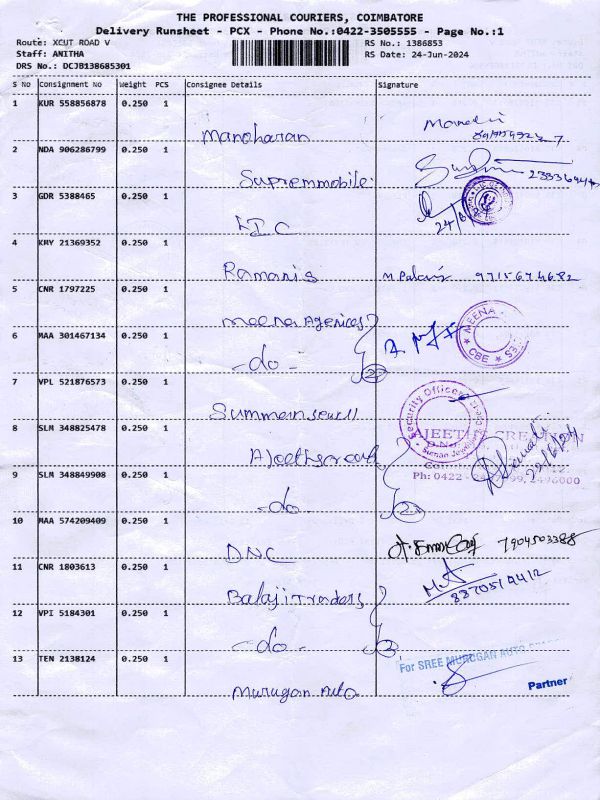 THE PROFESSIONAL COURIERS, COIMBATORE
Delivery Runsheet - PCX - Phone No.:0422-3505555 - Page No.:1
Route: XCUT ROAD V RS No.: 1386853
Staff: ANITHA RS Date: 24-Jun-2024
DRS No.: DCJB138685301
S NO Consignment No Weight PCS Consignee Details Signature
1 KUR 558856878 0.250 1
Manoharan
2 NDA 906286799 0.250 1
Supremmobile
3 GDR 5388465 0.250 1
LIC 24/6/24
4 KMY 21369352 0.250 1
Ramanis M Palani 9715674682
5 CNR 1797225 0.250 1
Meena Agenices MEENA
6 MAA 301467134 0.250 1 CBE
-do- 2
7 VPL 521876573 0.250 1
Security Officer
8 SLM 348825478 0.250 1
9 SLM 348849908 0.250 1
Ph: 0422 -
-do 2
10 MAA 574209409 0.250 1
DNC 7904503388
11 CNR 1803613 0.250 1
Balaji Traders
12 VPI 5184301 0.250 1
-do-
13 TEN 2138124 0.250 1 For SREE MURUGAN AUTO
Murugan Auto Partner